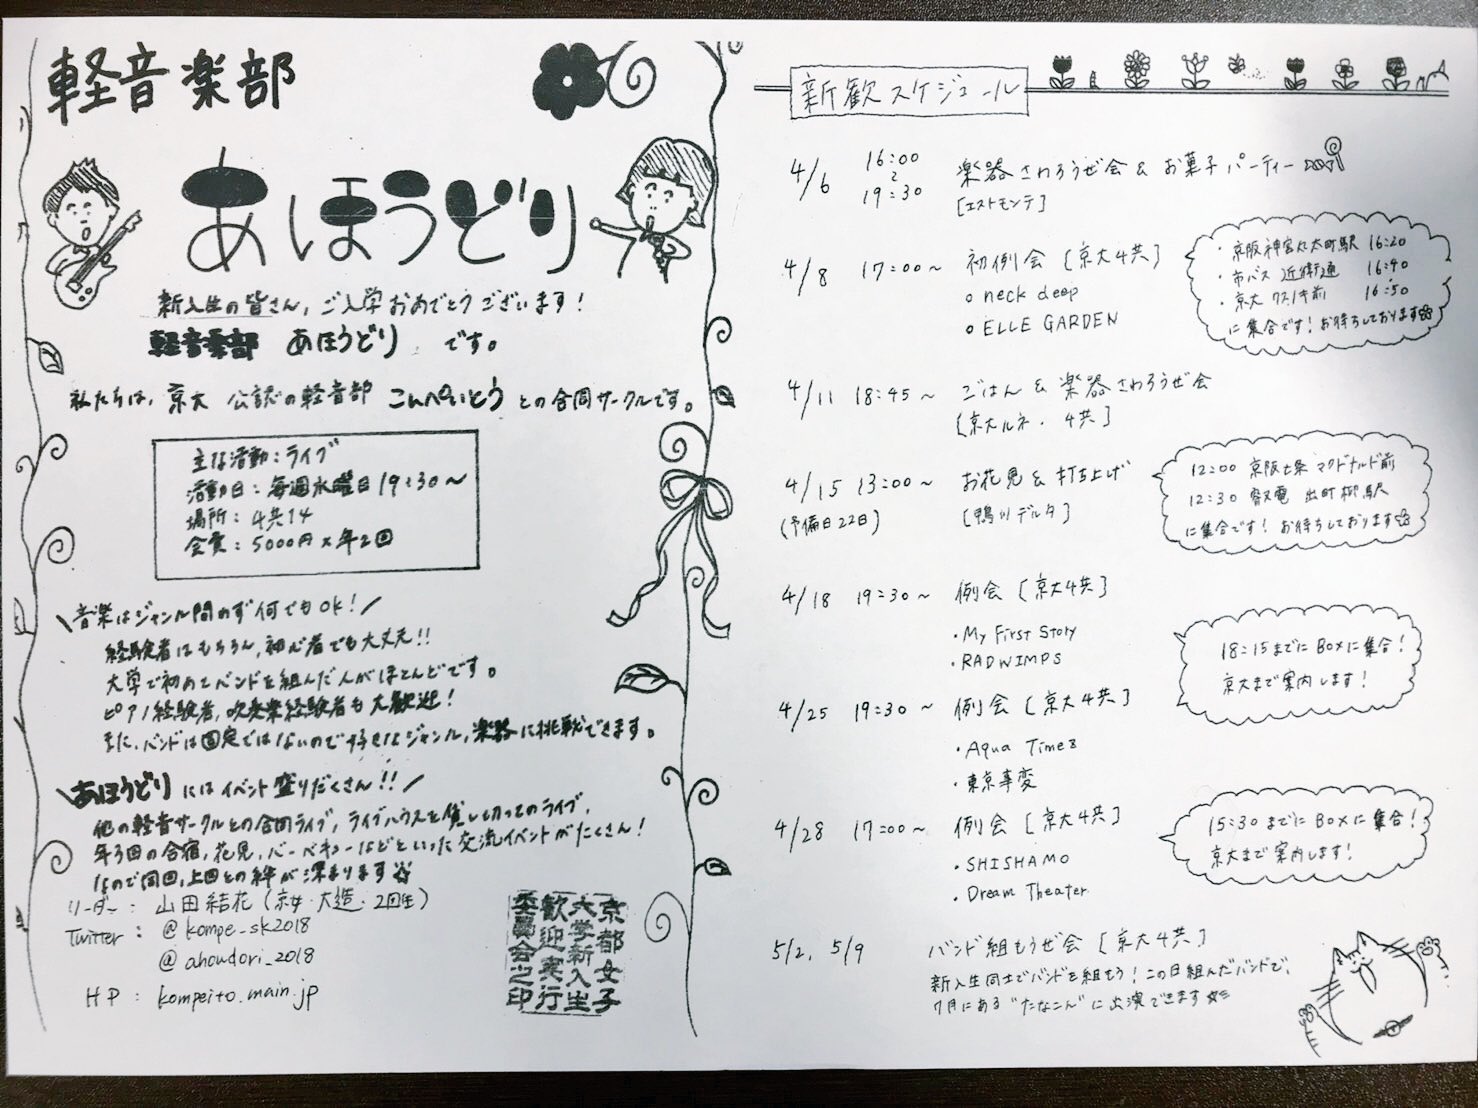 軽音楽部
あほうどり
新入生の皆さん，ご入学おめでとうございます！
軽音楽部 あほうどり です。
私たちは，京大 公認の軽音部 こんぺいとう との合同サークルです。
主な活動：ライブ
活動日：毎週水曜日19:30〜
場所：4共14
会費：5000円×年2回
\音楽はジャンル問わず何でもOK！/
経験者はもちろん，初心者でも大丈夫!!
大学で初めてバンドを組んだ人がほとんどです。
ピアノ経験者，吹奏楽経験者も大歓迎！
また，バンドは固定ではないので好きなジャンル，楽器に挑戦できます。
\あほうどりにはイベント盛りだくさん!!/
他の軽音サークルとの合同ライブ，ライブハウスを貸し切ってのライブ，
年3回の合宿，花見，バーベキューなどといった交流イベントがたくさん！
なので同回，上回との絆が深まります
リーダー：山田結花（京女・大造・2回生）
Twitter：@kompe_sk2018
@ahoudori_2018
HP：kompeito.main.jp
京都女子
大学新入生
歓迎実行
委員会之印
新歓スケジュール
4/6 16:00〜19:30 楽器さわろうぜ会 & お菓子パーティー
[エストモンテ]
4/8 17:00〜 初例会 [京大4共]
○ neck deep
○ ELLE GARDEN
・京阪神宮丸太町駅 16:20
・市バス 近衛通 16:40
・京大 クスノキ前 16:50
に集合です！お待ちしております
4/11 18:45〜 ごはん & 楽器さわろうぜ会
[京大ルネ・4共]
4/15 13:00〜 お花見 & 打ち上げ
(予備日22日) [鴨川デルタ]
12:00 京阪七条 マクドナルド前
12:30 叡電 出町柳駅
に集合です！お待ちしております
4/18 19:30〜 例会 [京大4共]
・My First Story
・RADWIMPS
18:15までにBoxに集合！
京大まで案内します！
4/25 19:30〜 例会 [京大4共]
・Aqua Timez
・東京事変
4/28 17:00〜 例会 [京大4共]
・SHISHAMO
・Dream Theater
15:30までにBoxに集合！
京大まで案内します！
5/2, 5/9 バンド組もうぜ会 [京大4共]
新入生同士でバンドを組もう！この日組んだバンドで，
7月にある"たなこん"に出演できます